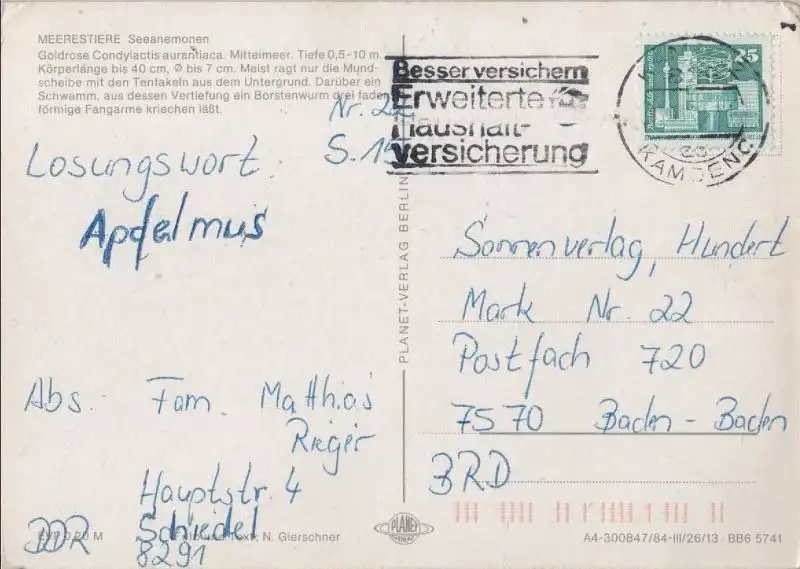 MEERESTIERE Seeanemonen
Goldrose Condylactis aurantiaca. Mittelmeer. Tiefe 0,5-10 m.
Körperlänge bis 40 cm, Ø bis 7 cm. Meist ragt nur die Mund-
scheibe mit den Tentakeln aus dem Untergrund. Darüber ein
Schwamm, aus dessen Vertiefung ein Borstenwurm drei faden-
förmige Fangarme kriechen läßt.
Nr. 22
Losungswort: S. 15
Apfelmus
Abs: Fam. Matthias
Rieger
Hauptstr. 4
Schiedel
DDR 8291
EVP 0,20 M Foto und Text: N. Gierschner
PLANET-VERLAG BERLIN
PLANET
VERLAG
Besser versichern
Erweiterte
Haushalt-
versicherung
25
KAMENZ
Sonnenverlag, Hundert
Mark Nr. 22
Postfach 720
7570 Baden-Baden
BRD
A4-300847/84-III/26/13 BB6 5741